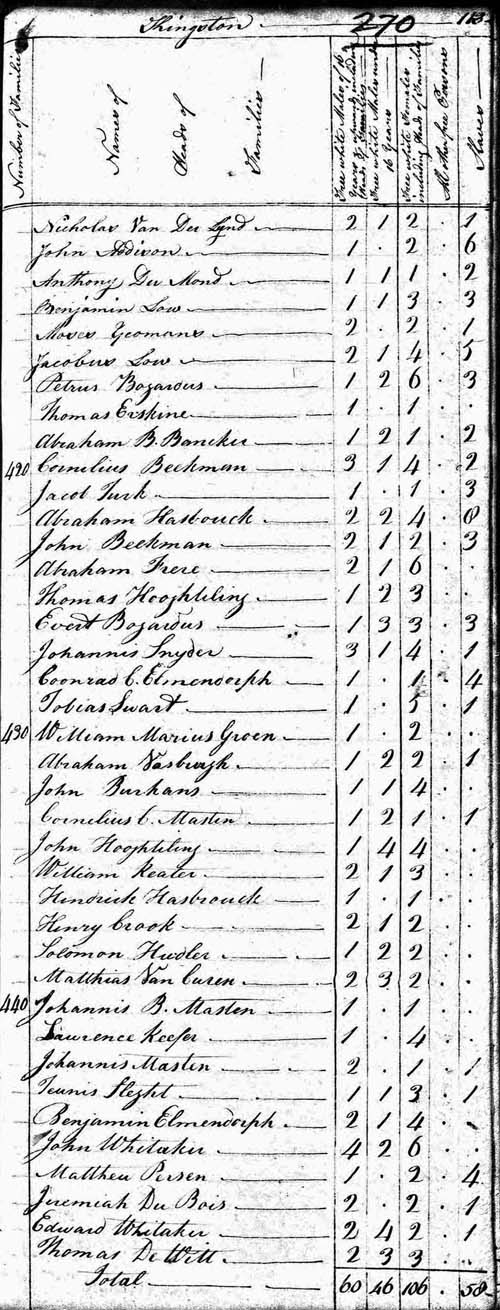 Kingston 270 113
Number of Families
Names of Heads of Families
Free white Males of 16 Years & upwards including Heads of Families
Free white Males under 16 Years
Free white Females including Heads of Families
All other free Persons
Slaves
Nicholas Van Der Lynd 2 1 2 . 1
John Addison 1 . 2 . 6
Anthony Du Mond 1 1 1 . 2
Benjamin Low 1 1 3 . 3
Moses Yeomans 2 . 2 . 1
Jacobus Low 2 1 4 . 5
Petrus Bogardus 1 2 6 . 3
Thomas Erskine 1 . 1 . .
Abraham B. Bancker 1 2 1 . 2
420 Cornelius Beekman 3 1 4 . 2
Jacob Turk 1 . 1 . 3
Abraham Hasbouck 2 2 4 . 8
John Beekman 2 1 2 . 3
Abraham Frere 2 1 6 . .
Thomas Hooghteling 1 2 3 . .
Evert Bogardus 1 3 3 . 3
Johannis Snyder 3 1 4 . 1
Coonrad C. Elmendorph 1 . 1 . 4
Tobias Swart 1 . 5 . 1
430 William Marius Groen 1 . 2 . .
Abraham Vosburgh 1 2 2 . 1
John Burhans 1 1 4 . .
Cornelius C. Masten 1 2 1 . 1
John Hooghteling 1 4 4 . .
William Keater 2 1 3 . .
Hendrick Hasbrouck 1 . 1 . .
Henry Crook 2 1 2 . .
Solomon Hudler 1 2 2 . .
Matthias Van Curen 2 3 2 . .
440 Johannis B. Masten 1 . 1 . .
Lawrence Keefer 1 . 4 . .
Johannis Masten 2 . 1 . 1
Teunis Sleght 1 1 3 . 1
Benjamin Elmendorph 2 1 4 . .
John Whitaker 4 2 6 . .
Matthew Persen 1 . 2 . 4
Jeremiah Du Bois 2 . 2 . 1
Edward Whitaker 2 4 2 . 1
Thomas De Witt 2 3 3 . .
Total 60 46 106 . 58